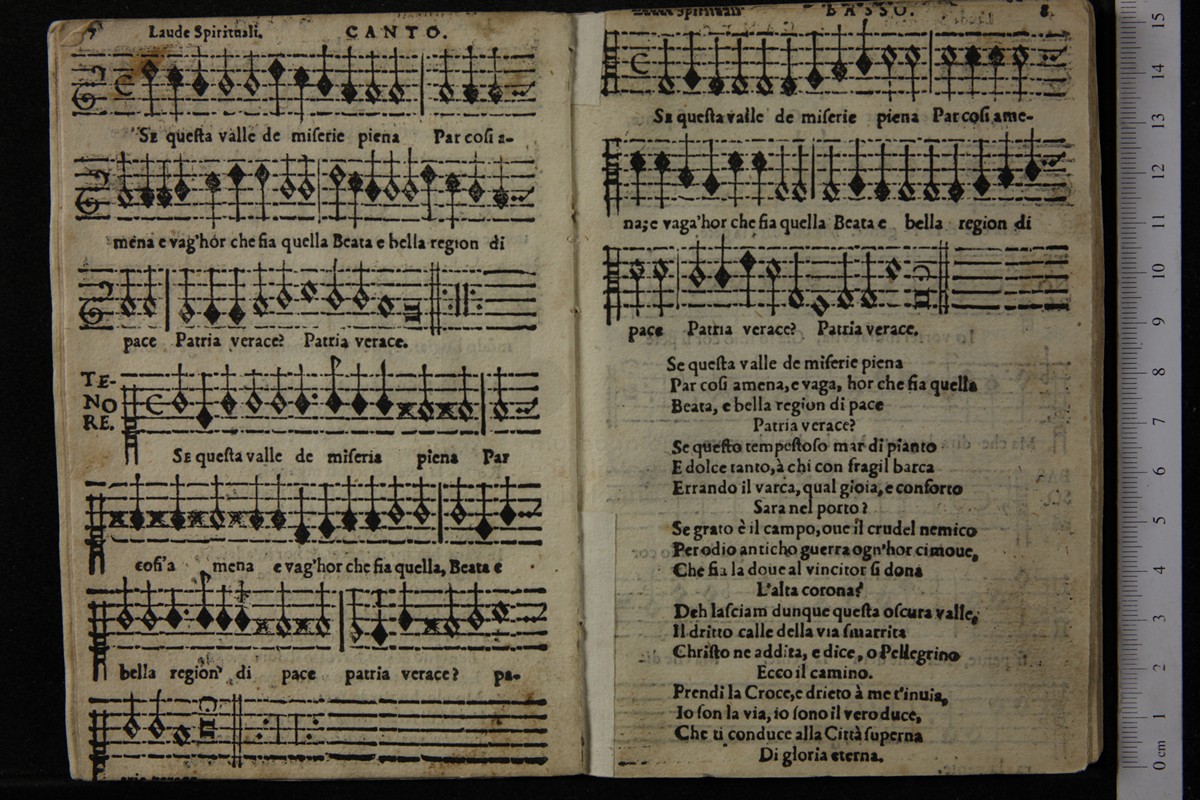 7 Laude Spirituali. CANTO.
SE questa valle de miserie piena Par cosi a-
mena e vag'hor che sia quella Beata e bella region di
pace Patria verace? Patria verace.
TE-
NO
RE.
SE questa valle de miseria piena Par
cosi'a mena e vag'hor che sia quella, Beata e
bella region' di pace patria verace? pa-
Laude Spirituali BASSO. 8.
SE questa valle de miserie piena Par cosi ame-
na; e vaga'hor che sia quella Beata e bella region di
pace Patria verace? Patria verace.
Se questa valle de miserie piena
Par cosi amena, e vaga, hor che sia quella
Beata, e bella region di pace
Patria verace?
Se questo tempestoso mar di pianto
E dolce tanto, à chi con fragil barca
Errando il varca, qual gioia, e conforto
Sara nel porto?
Se grato è il campo, oue il crudel nemico
Per odio anticho guerra ogn'hor ci moue,
Che sia la doue al vincitor si dona
L'alta corona?
Deh lasciam dunque questa oscura valle,
Il dritto calle della via smarrita
Christo ne addita, e dice, o Pellegrino
Ecco il camino.
Prendi la Croce, e drieto à me t'inuia,
Io son la via, io sono il vero duce,
Che ti conduce alla Città superna
Di gloria eterna.
15
14
13
12
11
10
9
8
7
6
5
4
3
2
1
0 cm